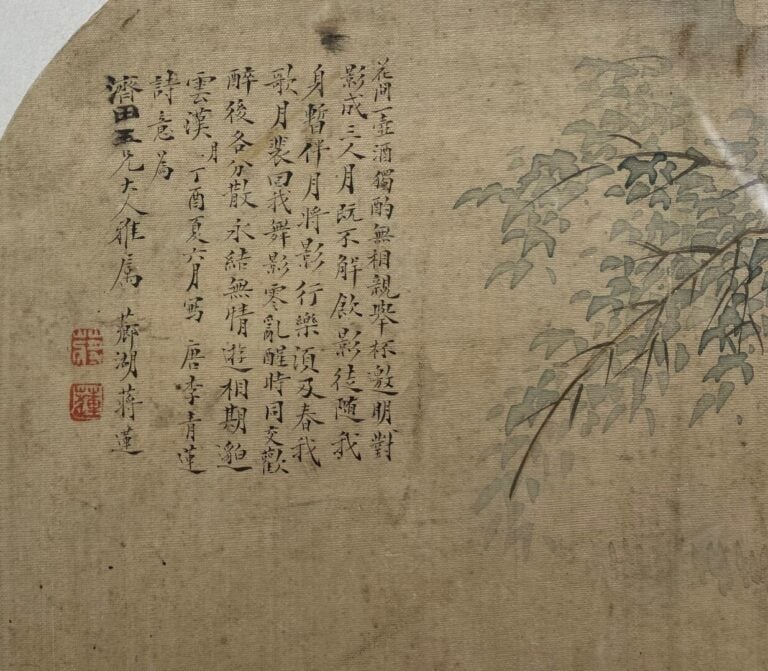 花间一壺酒獨酌無相親舉杯邀明對
影成三人月既不解飲影徒随我
身暫伴月將影行樂須及春我
歌月裴回我舞影零亂醒時同交歡
醉後各分散永結無情遊相期邈
雲漢 月 丁酉夏六月寫 唐李青蓮
詩意為
濟田五兄大人雅屬 薌湖蔣蓮
蓮